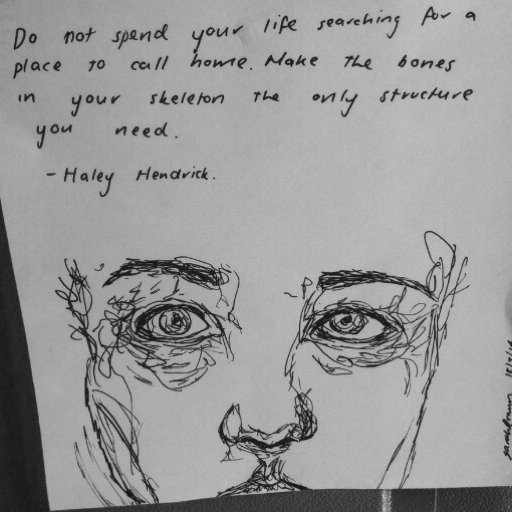 Do not spend your life searching for a
place to call home. Make the bones
in your skeleton the only structure
you need.
- Haley Hendrick.